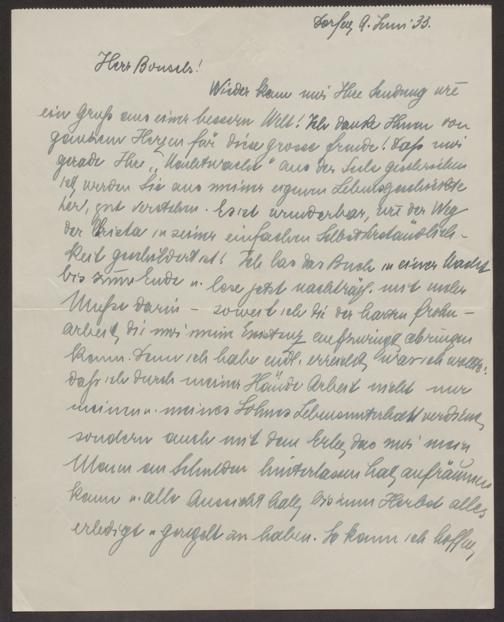 Dorfen, 9. Juni 33.
Herr Bonsels!
Wieder kam mir Ihre Sendung wie
ein Gruß aus einer bessern Welt! Ich danke Ihnen von
ganzem Herzen für diese grosse Freude! Daß mir
gerade Ihre "Nachtwache" aus der Seele geschrieben
ist, werden Sie aus meiner eigenen Lebensgeschichte
her, gut verstehen. Es ist wunderbar, wie der Weg
der in seiner einfachen Selbstverständlich-
keit geschildert ist! Ich las das Buch in einer Nacht
bis zum Ende u. lese jetzt nachträgl. mit mehr
Muße darin – soweit ich die der harten Frohn-
arbeit, die mir meine Existenz aufzwingt abringen
kann. Denn ich habe endl. erreicht, was ich wollte:
daß ich durch meiner Hände Arbeit nicht nur
meinen u. meines Sohnes Lebensunterhalt verdiene,
sondern auch mit dem Erbe, das mir mein
Mann an Schulden hinterlassen hat, aufräumen
kann u. alle Aussicht habe, bis zum Herbst alles
erledigt u. geregelt zu haben. So kann ich hoffen,